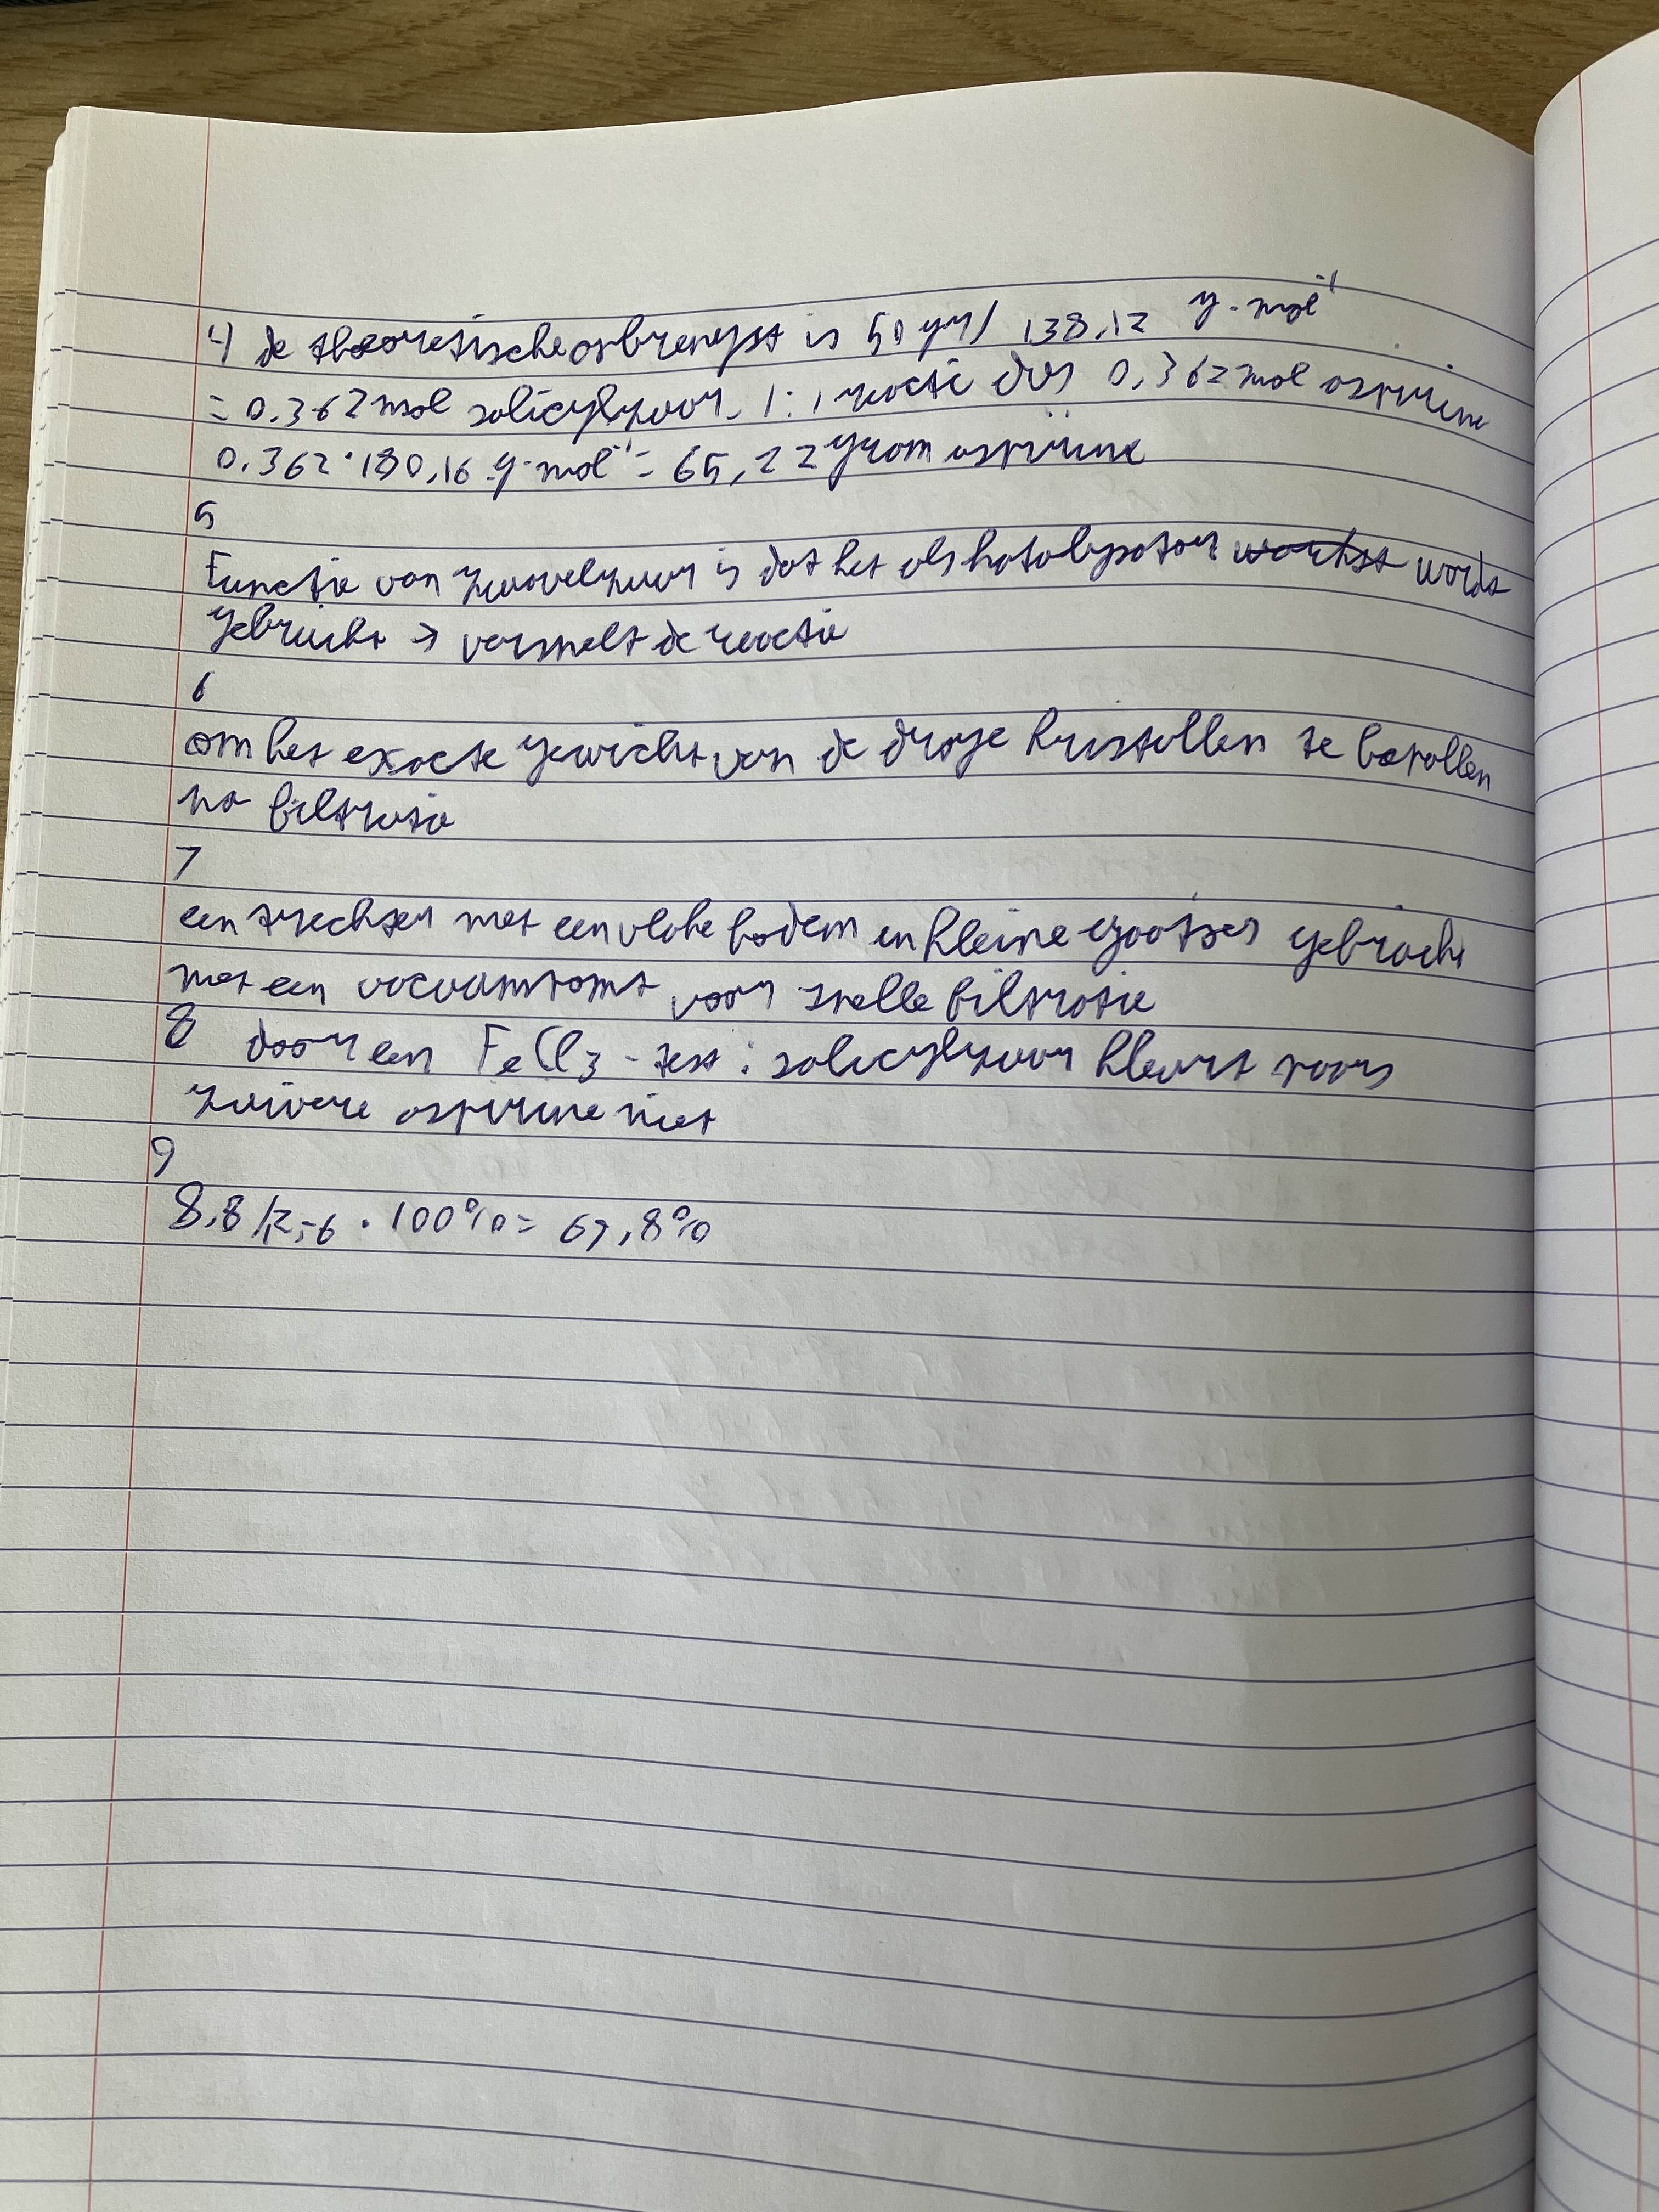 4) de theoretische opbrengst is 50 gr / 138,12 g·mol⁻¹
= 0,362 mol salicylzuur. 1:1 reactie dus 0,362 mol aspirine
0,362 · 180,16 g·mol⁻¹ = 65,22 gram aspirine
5
Functie van zwavelzuur is dat het als katalysator werkt wordt
gebruikt → versnelt de reactie
6
om het exacte gewicht van de droge kristallen te bepallen
na filtratie
7
een trechter met een vlake bodem en kleine gaatjes gebruikt
met een vacuum pomp voor snelle filtratie
8 door een FeCl₃ - test : salicylzuur kleurt paars
zuivere aspirine niet
9
8,8 / · 100% = 67,8%